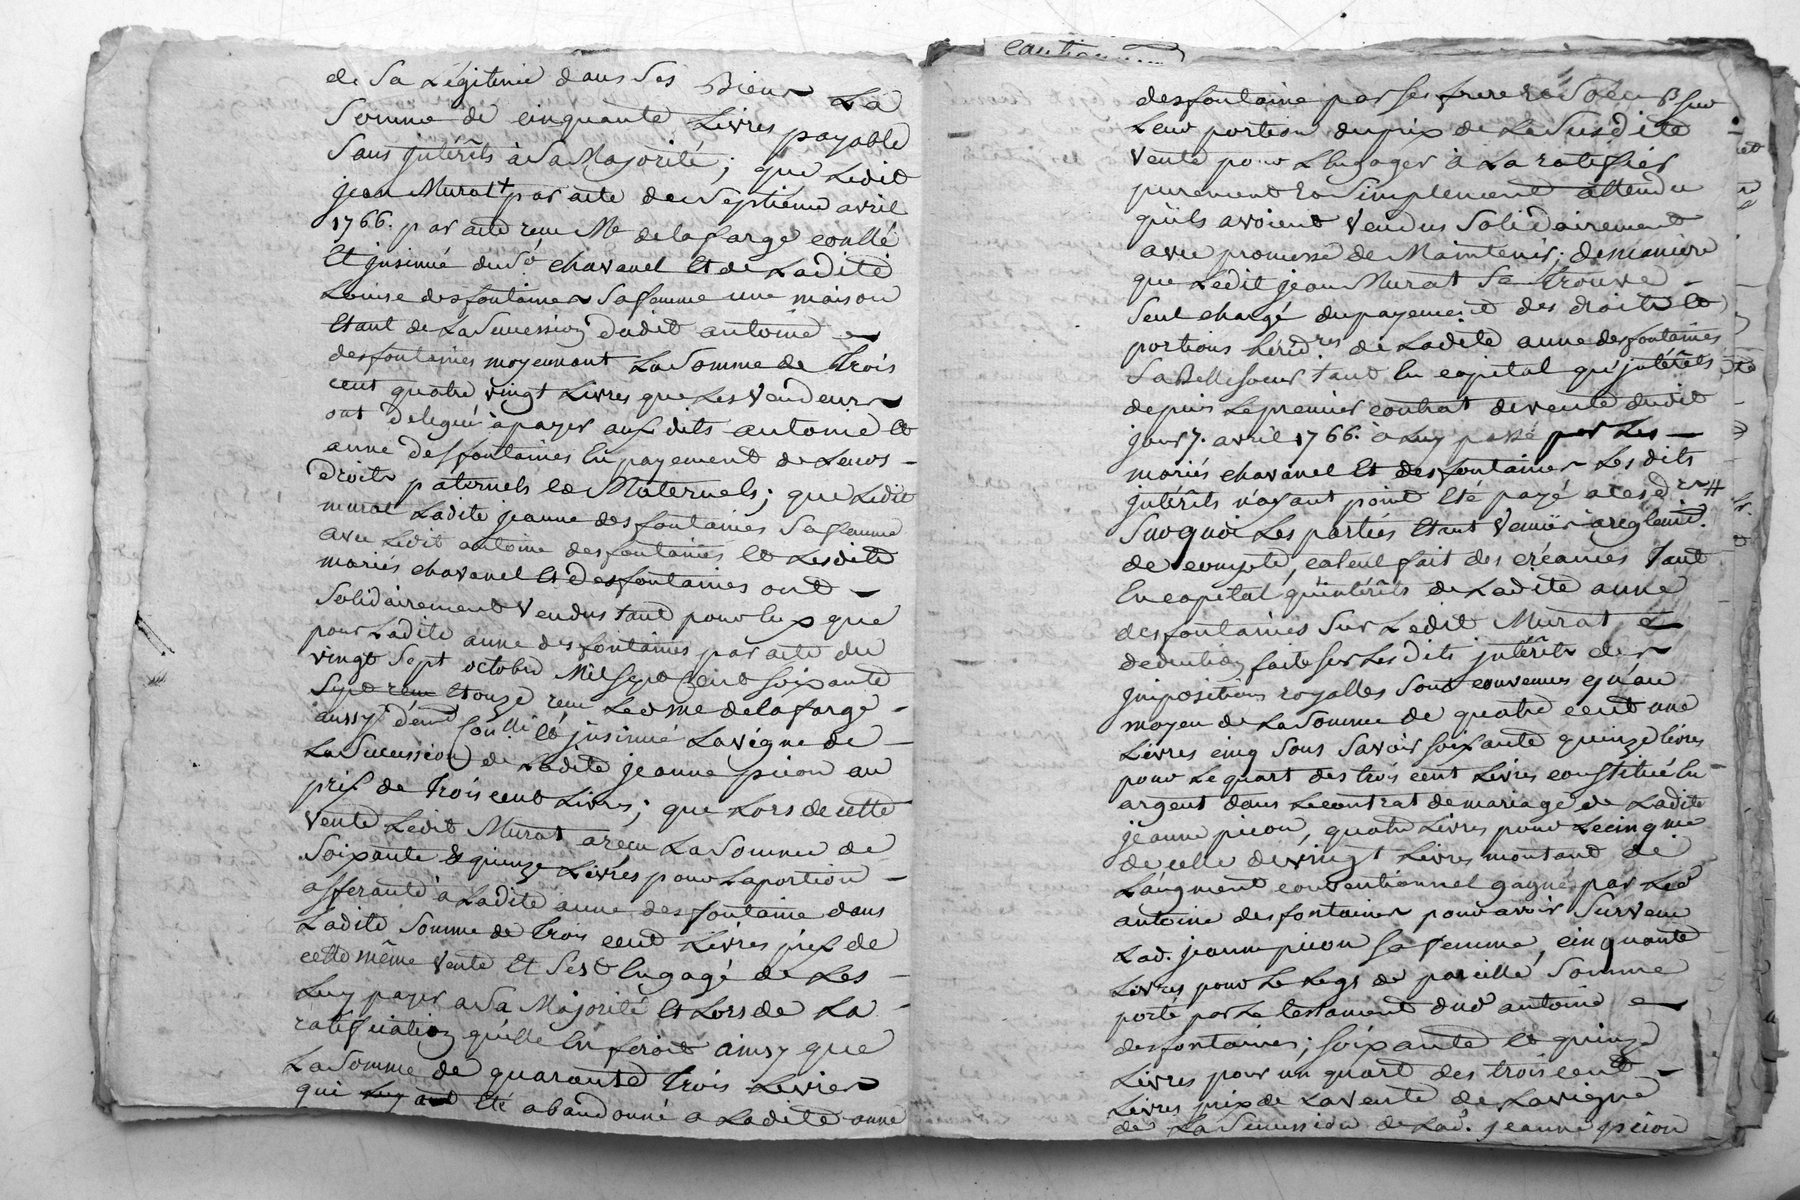 de Sa Légitime dans Ses Biens La
Somme de cinquante Livres payable
Sans jntérêts à Sa Majorité; que Ledit
jean Murat par acte du Septième avril
1766. par acte recu Me delafarge conllé
Et jnsinué du Sr. chavanel Et de Ladite
Louise desfontaines Safamme une maison
Etant de La Sucession dudit antoine
desfontaines moyennant La Somme de trois
cent quatre vingt Livres que Les Vendeurs
ont delegué à payer aux dits antoine et
anne desfontaines En payement de Leurs
droits paternels et Maternels; que Ledit
murat Ladite jeanne desfontaines Safamme
avec Ledit antoine desfontaines et Lesdits
mariés chavanel Et desfontaines ont
Solidairement Vendus tant pour Eux que
pour Ladite anne desfontaines par acte du
vingt Sept octobre Mil Sept Cent Soixante
Sept recu Et onze recu Ledme delafarge
aussy dEment Conllé Et jnsinué Lavigne de
La Sucession de Ladite jeanne picon au
prix de trois cent Livres; que Lors de cette
Vente Ledit Murat a recu La Somme de
Soixante Et quinze Livres pour Laportion
afferante à Ladite anne desfontaine dans
Ladite Somme de trois cent Livres prix de
cette même Vente Et S'est Engagé de Les
Luy payer a Sa Majorité Et Lors de La
ratification qu'elle En feroit ainsy que
La Somme de quarante trois Livres
qui Luy ont Eté abandonné a Ladite anne
cautionnem
desfontaine par Ses frere et Soeurs Sur
Leur portion du prix de La Susdite
Vente pour L'Engager à La ratiffier
purement et Simplement attendu
qu'ils avoient Vendus Solidairement
avec promesse de Maintenir; de maniere
que Ledit jean Murat Se trouve
Seul chargé du payement des droits Et
portions hérédres de Ladite anne desfontaines
Sa Belle Soeur tant En capital qu'jntérêts
depuis Le premier contrat de vente dudit
jour 7. avril 1766. à Luy passé par Les
mariés chavanel Et desfontaines Lesdits
jntérêts n'ayant point Eté payé a ces drs #
Surquoi Les parties Etant Venües à reglemt.
de compte, calcul fait des créances tant
En capital qu'intérêts de Ladite anne
desfontaines Sur Ledit Murat Et
deduction faite Sur Lesdits jntérêts des
jmpositions royalles Sont convenues qu'au
moyen de La Somme de quatre cent une
Livres cinq Sous Savoir Soixante quinze livres
pour Le quart des trois cent Livres constitué En
argent dans Le contrat de mariage de Ladite
jeanne picon, quatre Livres pour Le cinqme
de celle de vingt Livres montant de
L'augment conventionnel gagné par Led
antoine desfontaines pour avoir Survecu
Lad. jeanne picon Sa femme, cinquante
Livres pour Le Legs de pareille Somme
porté par Le testament dud antoine
desfontaines; Soixante Et quinze
Livres pour un quart des trois cent
Livres prix de La vente de La vigne
de La Sucession de Lad. jeanne picon